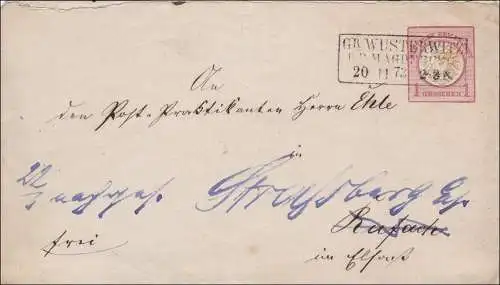 GR. WUSTERWITZ
20 11 73
1 GROSCHEN
An
den Post-Praktikanten Herrn Ehle
in
Straßburg
Rufach
frei
im Elsaß